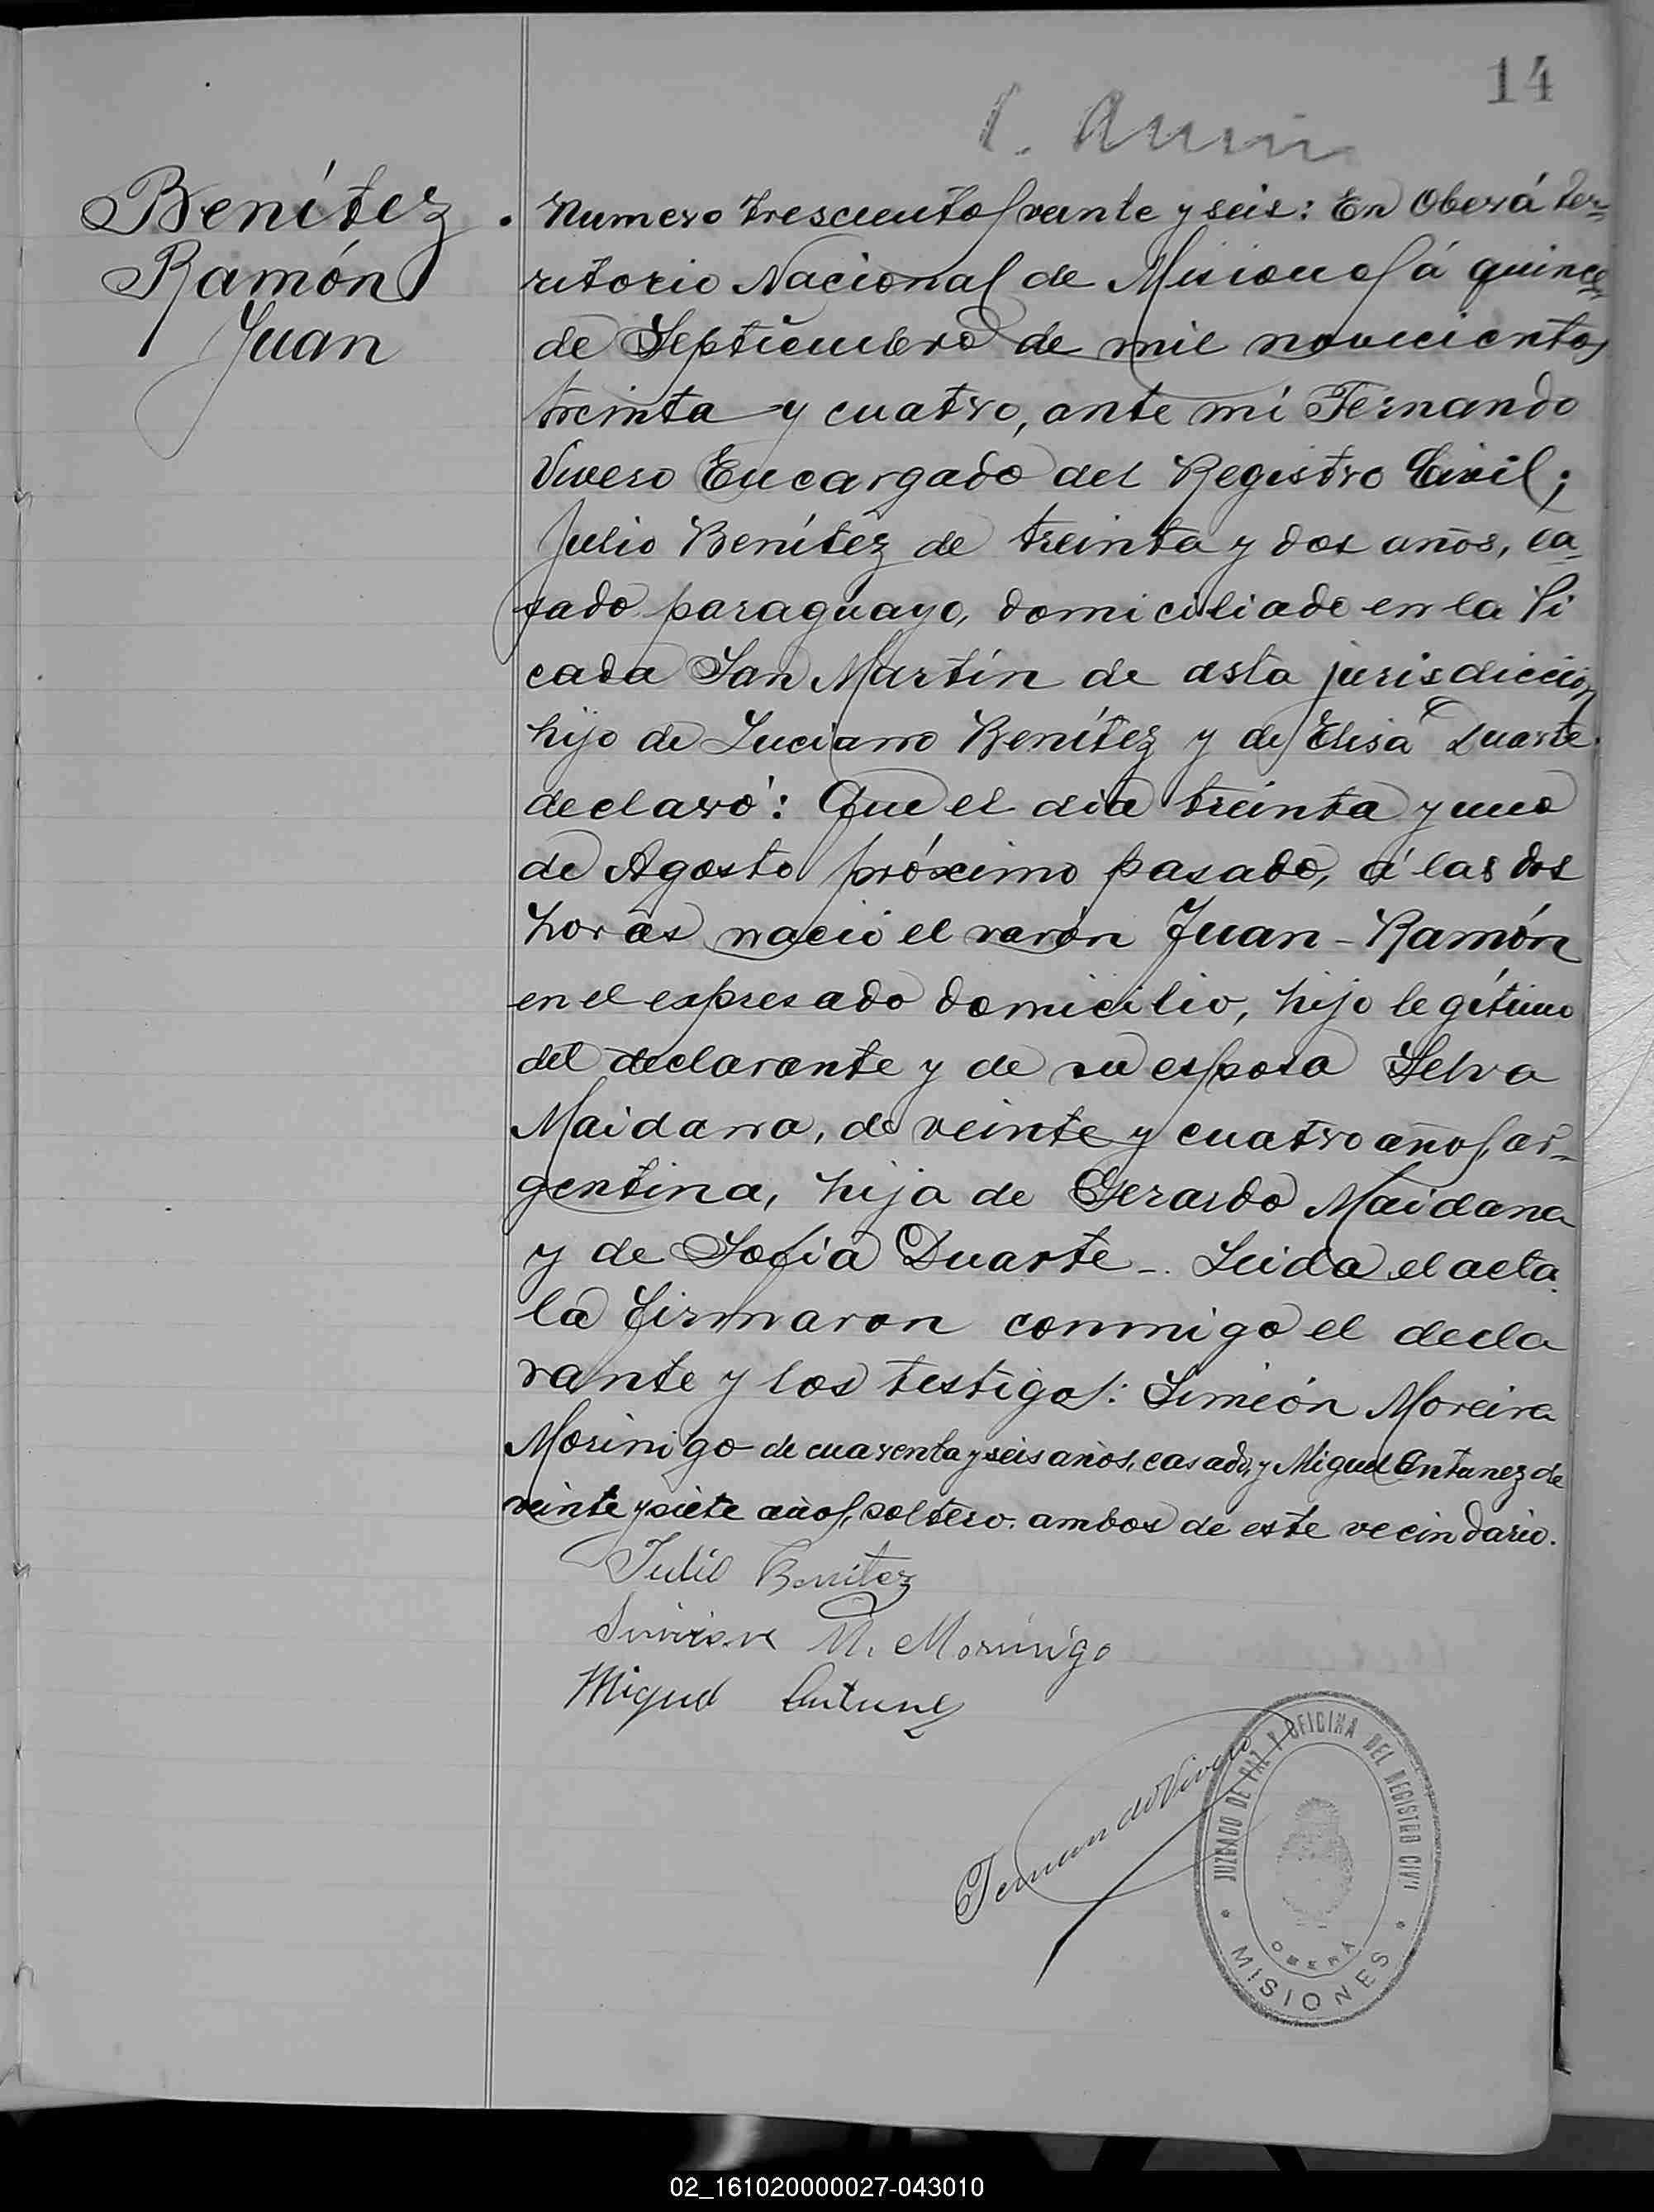 14
Benítez
Ramón
Juan
Numero trescientos veinte y seis: En Oberá ter-
ritorio Nacional de Misiones á quince
de Septiembre de mil novecientos
treinta y cuatro, ante mí Fernando
Vivero Encargado del Registro Civil;
Julio Benítez de treinta y dos años, ca-
sado paraguayo, domiciliado en la Pi
cada San Martín de esta jurisdicción
hijo de Luciano Benítez y de Elisa Duarte.
declaró: Que el día treinta y uno
de Agosto próximo pasado, á las dos
horas nació el varón Juan-Ramón
en el expresado domicilio, hijo legítimo
del declarante y de su esposa Selva
Maidana, de veinte y cuatro años, ar-
gentina, hija de Gerardo Maidana
y de Sofía Duarte -. Leida el acta
la firmaron conmigo el decla
rante y los testigos: Simeón Moreira
Morinigo de cuarenta y seis años, casado, y Miguel Antunez de
veinte y siete años, soltero. ambos de este vecindario.
Julio Benitez
Simeon M. Morinigo
Miguel Antunez
Fernando Vivero
JUZGADO DE PAZ Y OFICINA DEL REGISTRO CIVIL
OBERÁ
* MISIONES *
02_161020000027-043010